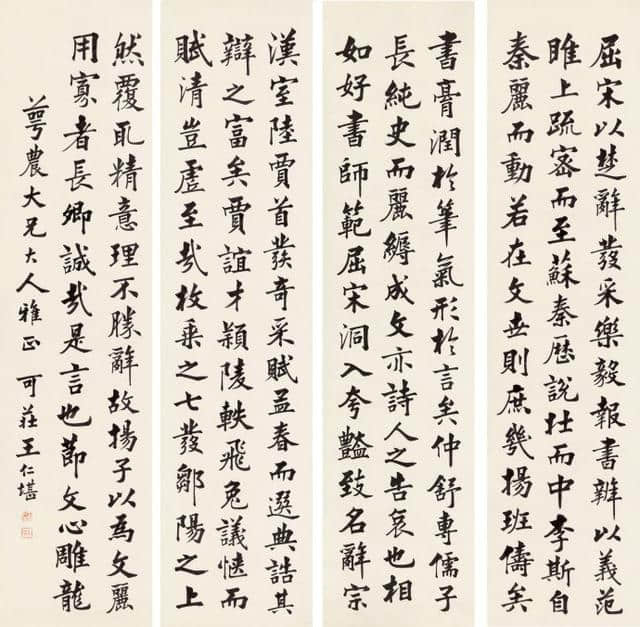 屈宋以楚辭發采樂毅報書辨以義范
雎上疏密而至蘇秦歷說壯而中李斯自
秦麗而動若在文世則庶幾揚班儔矣
漢室陸賈首發奇采賦孟春而選典誥其
辯之富矣賈誼才穎陵軼飛兔議愜而
賦清豈虛至哉枚乘之七發鄒陽之上
書膏潤於筆氣形於言矣仲舒專儒子
長純史而麗縟成文亦詩人之告哀也相
如好書師範屈宋洞入夸豔致名辭宗
然覆取精意理不勝辭故揚子以為文麗
用寡者長卿誠哉是言也節文心雕龍
萼農大兄大人雅正 可莊王仁堪